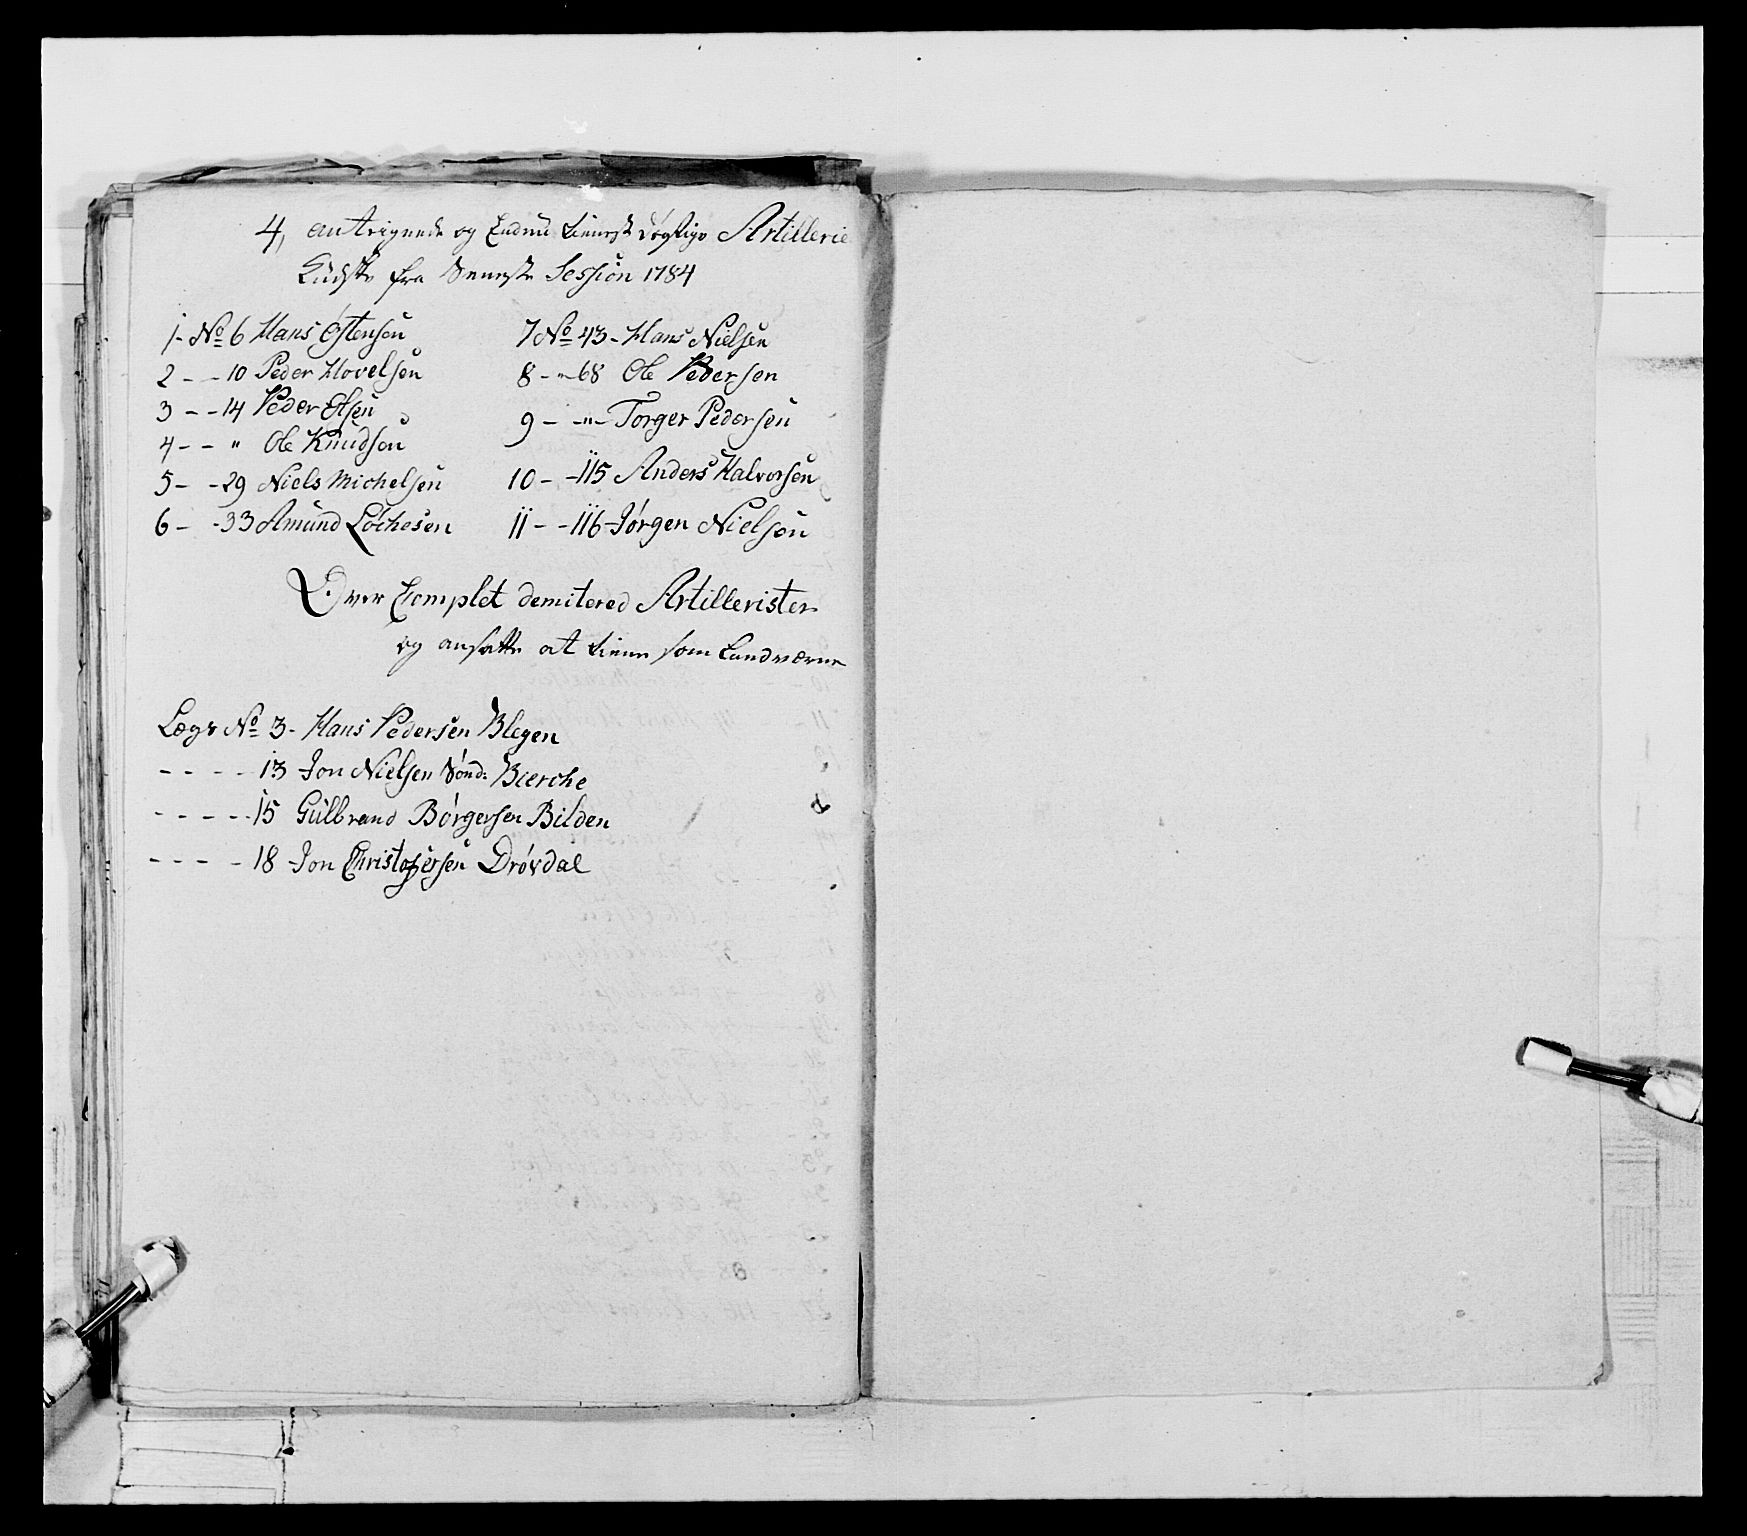 4, antegnede og Endnu tienest dögtige Artillerie
Lüdske fra Seneste Sessión 1784
1- No 6 Hans Östensen
2 - - 10 Peder Hovelsen
3 - - 14 Peder Olsen
4 - - " Ole Knüdsen
5 - - 29 Niels Michelsen
6 - - 33 Amünd Löchesen
7 No 43 - Hans Nielsen
8 - " - 68 Ole Pedersen
9 - - " - Torger Pedersen
10 - - 115 Anders Halvorsen
11 - - 116 Jörgen Nielsen
Over Complet demitered Artillerister
og ansatte at tiene som Landværne
Lægs No 3 - Hans Pedersen Blegen
- - - - 13 Jon Nielsen Sönd: Bierche
- - - - - 15 Gülbrand Börgersen Bilden
- - - - 18 Jon Christophersen Drövdal